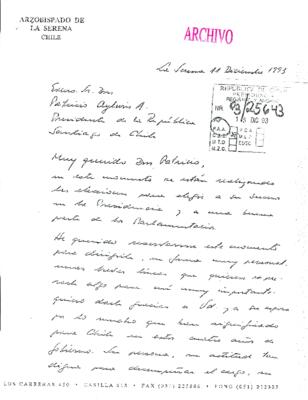 ARZOBISPADO DE
LA SERENA
CHILE
ARCHIVO
La Serena 11 Diciembre 1993
Excmo. Sr. Don
Patricio Aylwin A.
Presidente de la República
Santiago de Chile
REPUBLICA DE CHILE
PRESIDENCIA
NR. 93/25643
DIC 93
P.A.A.
Muy querido Don Patricio,
en este momento se están realizando
las elecciones para elegir a su sucesor
en la Presidencia y a una buena
parte de los Parlamentarios.
He querido reservarme este momento
para dirigirle, en forma muy personal,
unas breves líneas que quieren expre-
sar algo para mí muy importante:
quiero darle gracias a Ud. y a su espo-
sa por lo mucho que han significado
para Chile en estos cuatro años de
gobierno. Su persona, su actitud tan
digna para desempeñar el cargo, su
LOS CARRERA 450 - CASILLA 613 - FAX (051) 225886 - FONO (051)